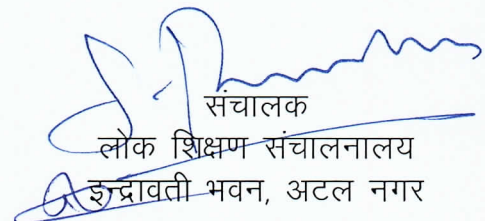 संचालक
लोक शिक्षण संचालनालय
इन्द्रावती भवन, अटल नगर